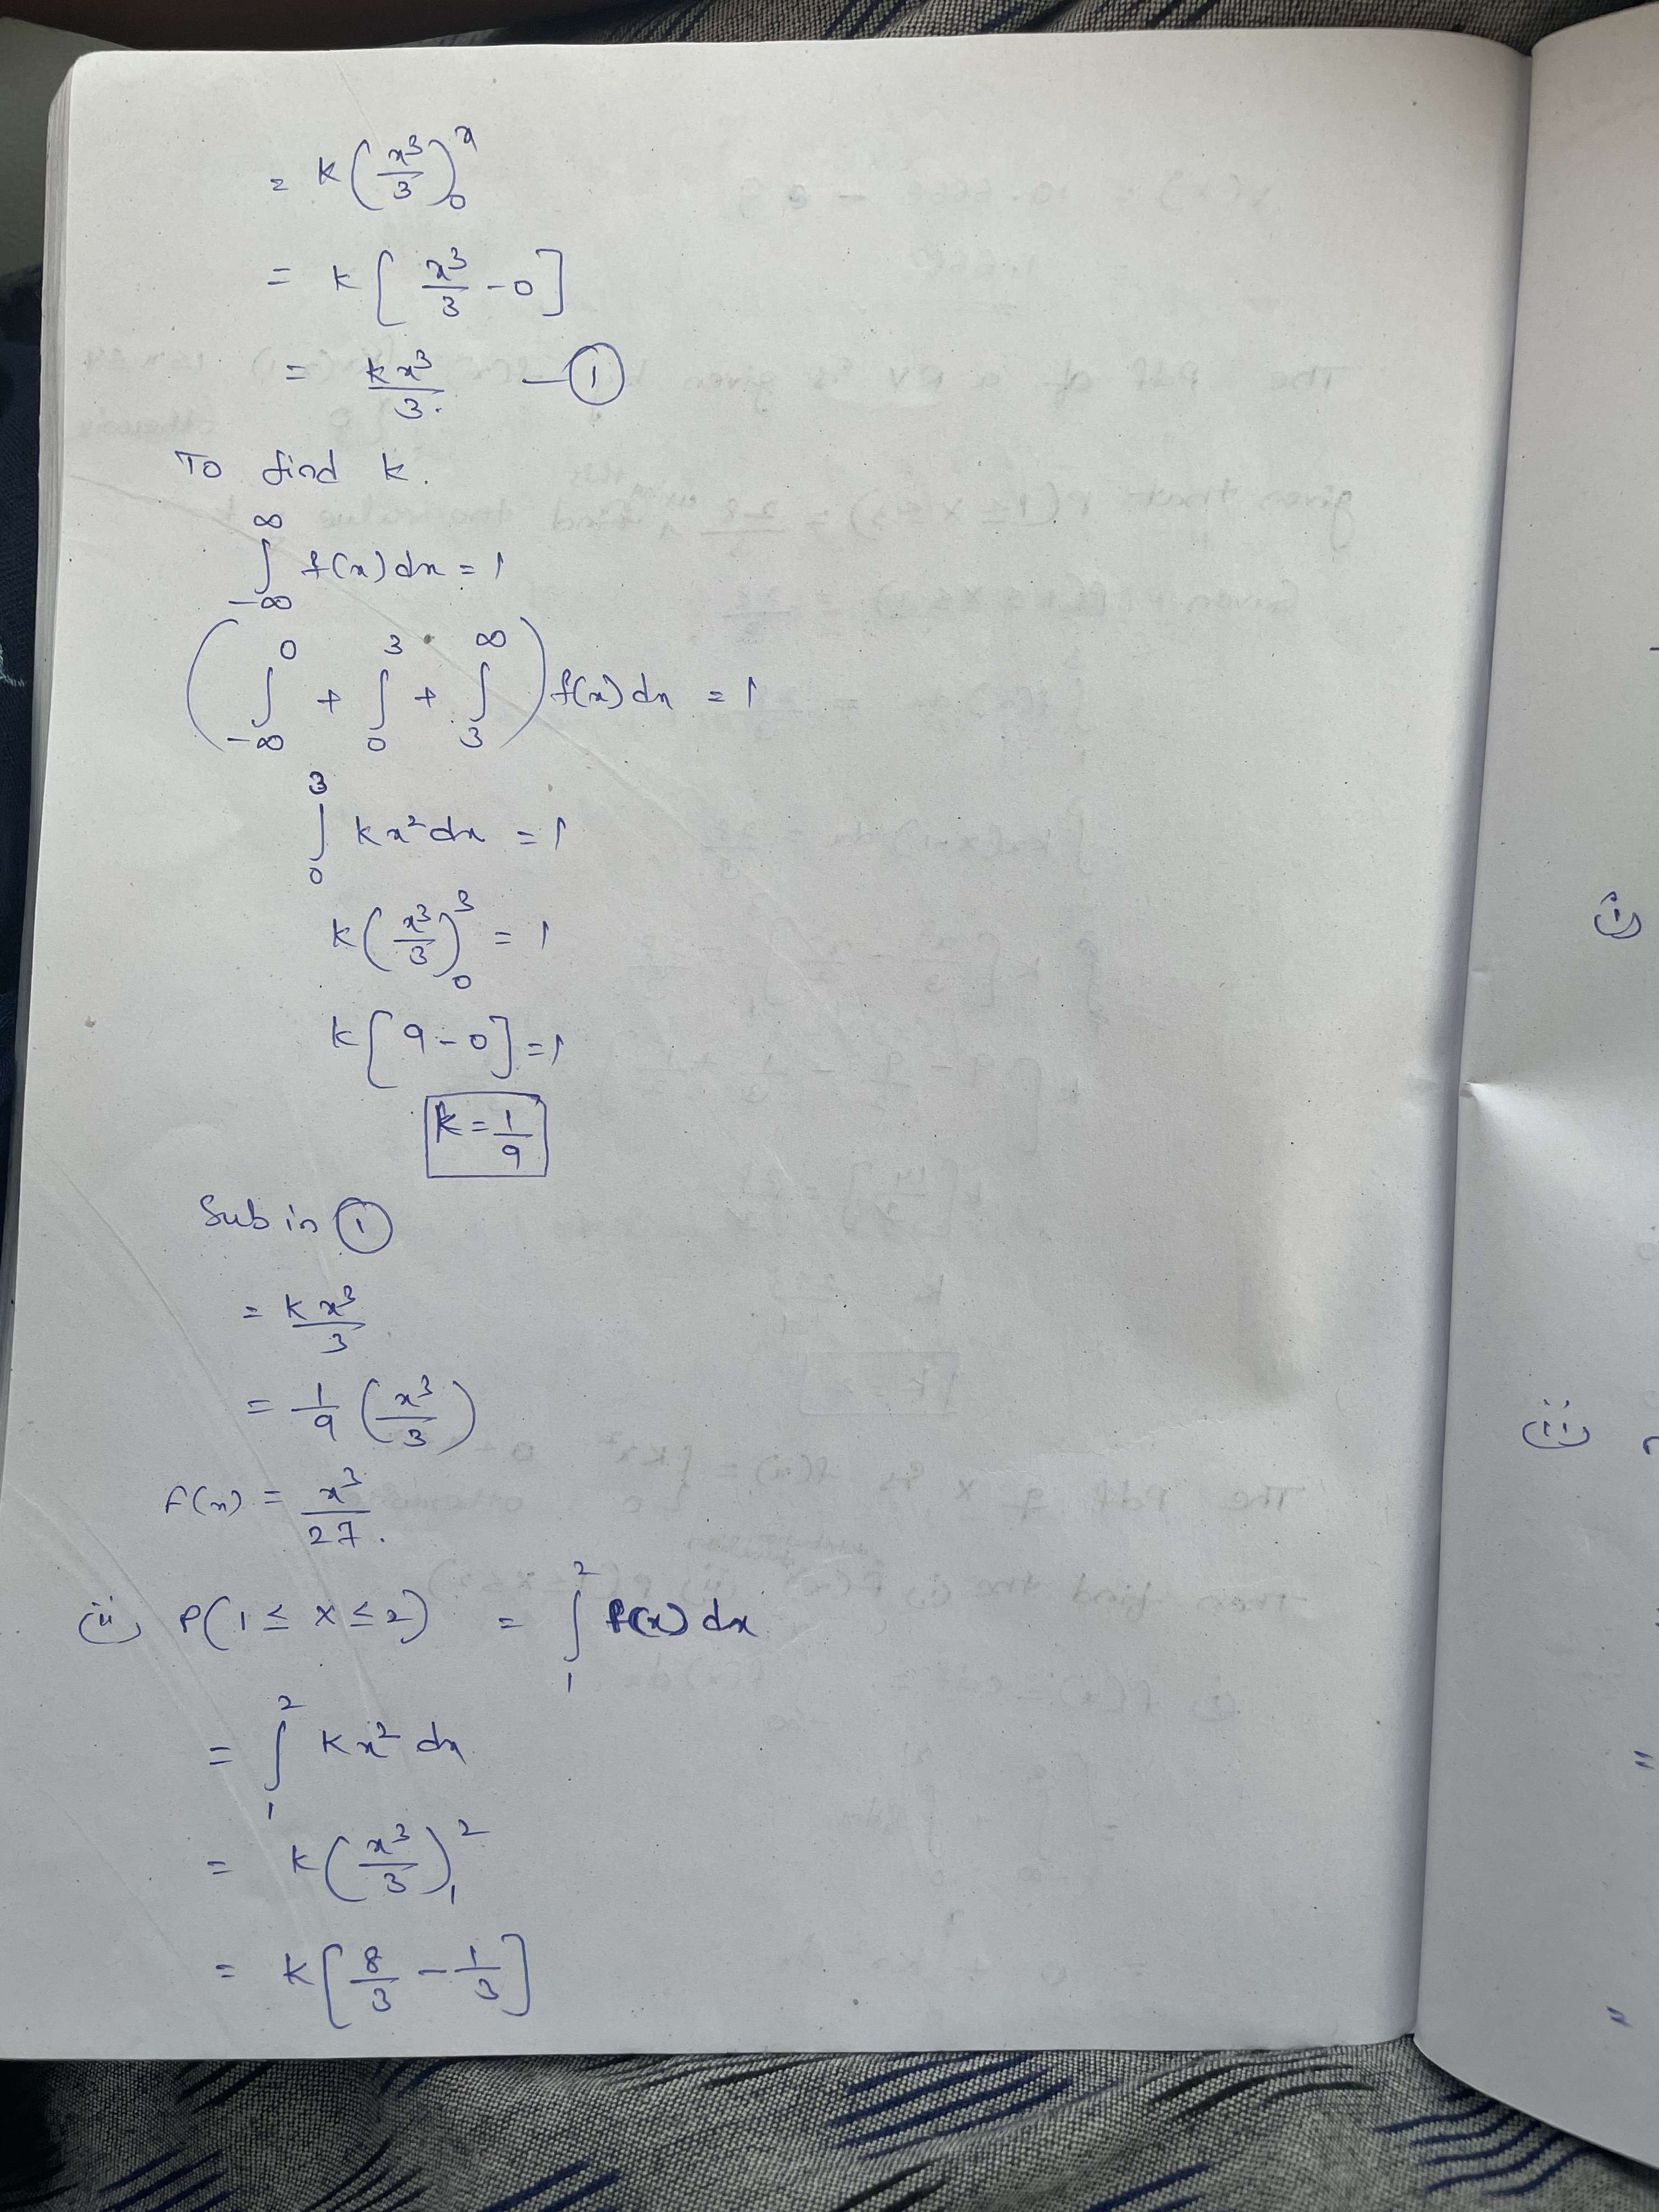 = k(x³/3)₀ˣ
= k[x³/3 - 0]
= kx³/3. — ①
To find k.
∫_{-∞}^{∞} f(x)dx = 1
(∫_{-∞}^{0} + ∫_{0}^{3} + ∫_{3}^{∞}) f(x)dx = 1
∫_{0}^{3} kx²dx = 1
k(x³/3)₀³ = 1
k[9-0] = 1
k = 1/9
Sub in ①
= kx³/3
= 1/9 (x³/3)
F(x) = x³/27.
(ii) P(1 ≤ x ≤ 2) = ∫_{1}^{2} f(x)dx
= ∫_{1}^{2} kx² dx
= k(x³/3)₁²
= k[8/3 - 1/3]